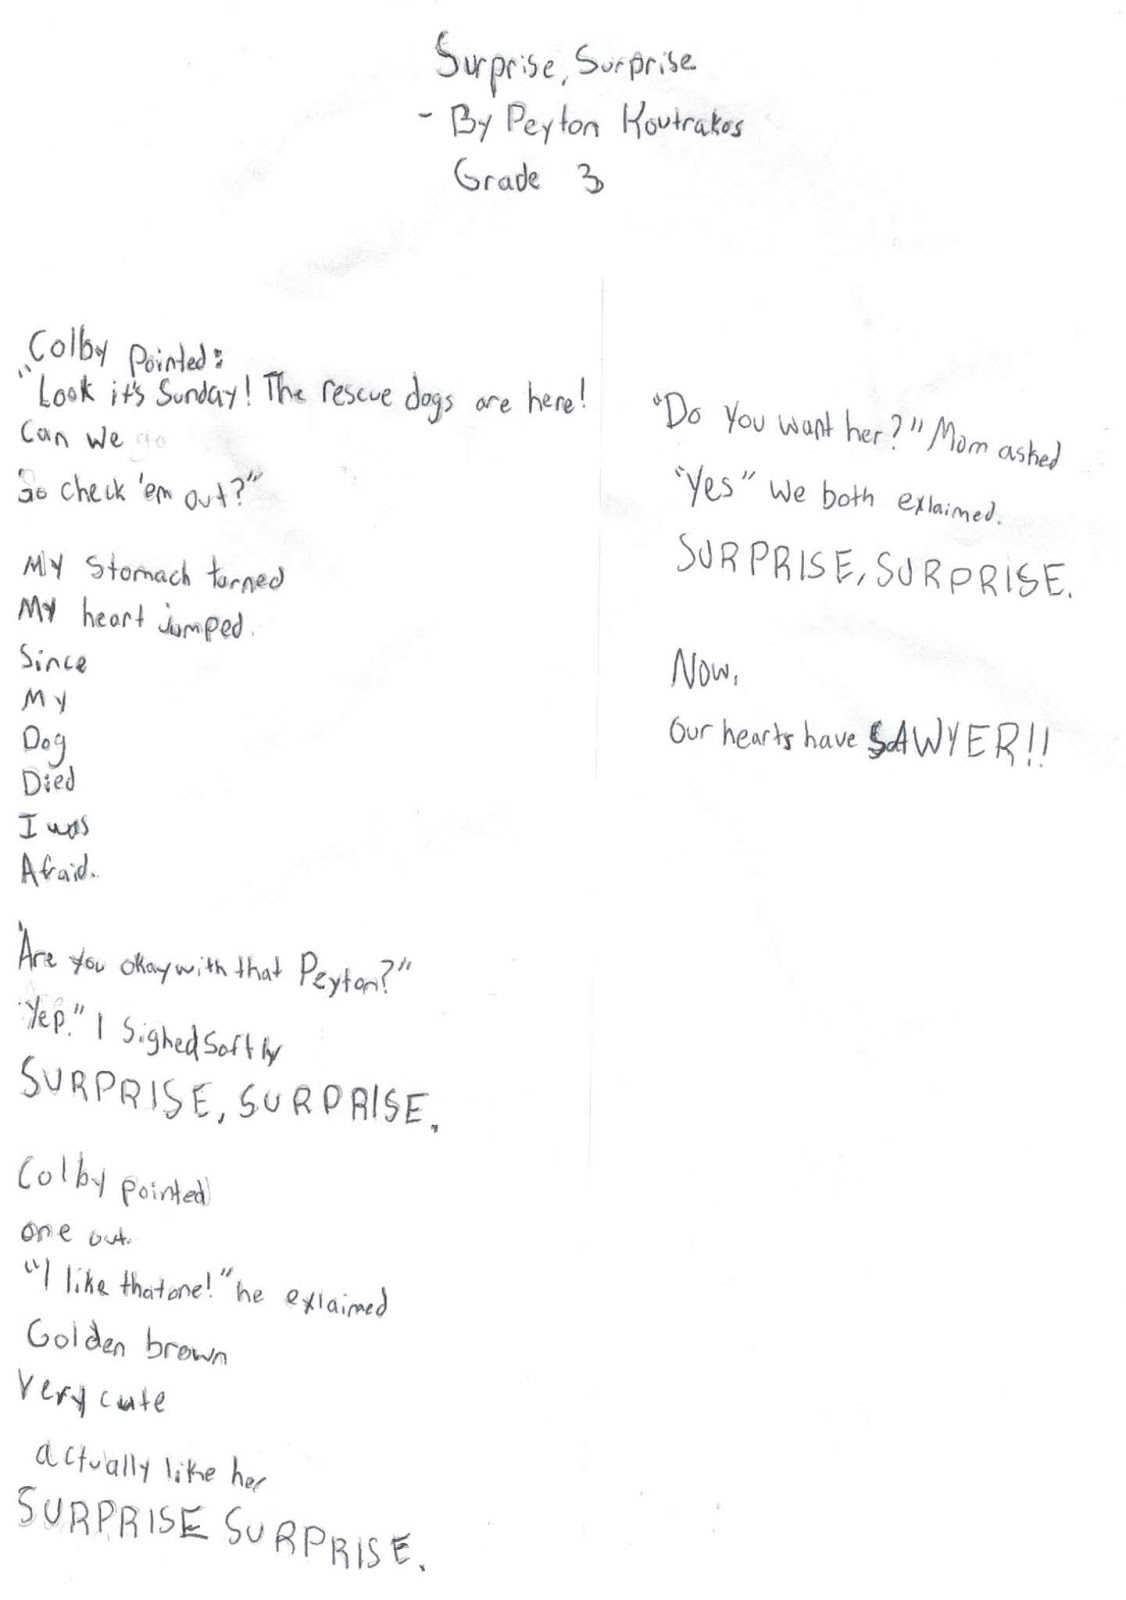 Surprise, Surprise
- By Peyton Koutrakos
Grade 3
Colby pointed:
"Look it's Sunday! The rescue dogs are here!
Can we go
go check 'em out?"
My stomach turned
My heart jumped.
Since
My
Dog
Died
I was
Afraid.
"Are you okay with that Peyton?"
"Yep." I sighed softly
SURPRISE, SURPRISE.
Colby pointed
one out.
"I like that one!" he exlaimed
Golden brown
Very cute
actually like her
SURPRISE SURPRISE.
"Do you want her?" Mom asked
"Yes" we both exlaimed.
SURPRISE, SURPRISE.
Now,
Our hearts have SAWYER!!